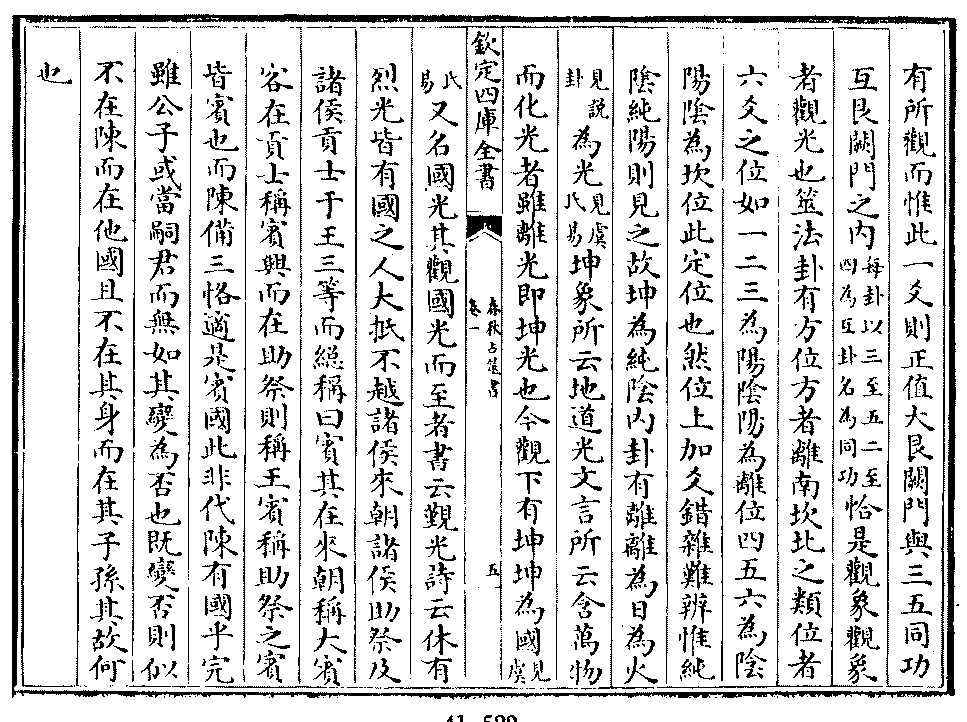 有所觀而惟此一爻則正值大艮闕門與三五同功
互艮闕門之內每卦以三至五二至四為互卦名為同功恰是觀象觀象
者觀光也筮法卦有方位方者離南坎北之類位者
六爻之位如一二三為陽陰陽為離位四五六為陰
陽陰為坎位此定位也然位上加爻錯雜難辨惟純
陰純陽則見之故坤為純陰內卦有離離為日為火
見説卦為光見虞氏易坤象所云地道光文言所云含萬物
而化光者雖離光即坤光也今觀下有坤坤為國見虞
欽定四庫全書
春秋占筮書
卷一
五
氏易又名國光其觀國光而至者書云覲光詩云休有
烈光皆有國之人大抵不越諸侯來朝諸侯助祭及
諸侯貢士于王三等而總稱曰賓其在來朝稱大賓
客在貢士稱賓興而在助祭則稱王賓稱助祭之賓
皆賓也而陳備三恪適是賓國此非代陳有國乎完
雖公子或當嗣君而無如其變為否也既變否則似
不在陳而在他國且不在其身而在其子孫其故何
也
41-529